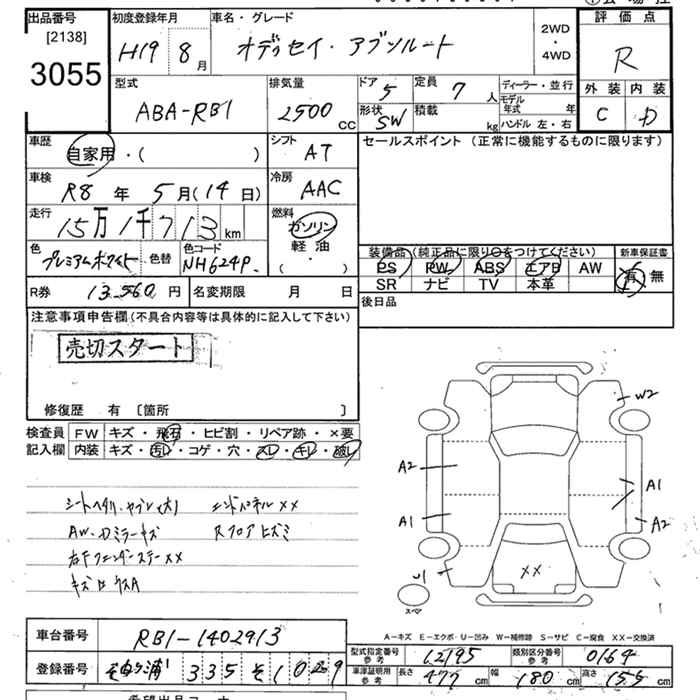 出品番号 初度登録年月 車名・グレード 評価点
[2138] H19 8月 オデッセイ・アブソルート 2WD・4WD R
3055
型式 排気量 ドア 5 定員 7人 ディーラー・並行 外装 内装
ABA-RB1 2500cc 形状 SW 積載 kg モデル年式 年 C D
ハンドル 左・右
車歴 シフト セールスポイント (正常に機能するものに限ります)
自家用・( ) AT
車検 冷房
R8年 5月(14日) AAC
走行 燃料
15万1千713km ガソリン
軽油
( ・ )
色 プレミアムホワイト 色替 色コード NH624P 装備品 (純正品に限り○をつけてください) 新車保証書
PS PW ABS エアB AW 有 無
SR ナビ TV 本革
R券 13,560円 名変期限 月 日 後日品
注意事項申告欄 (不具合内容等は具体的に記入して下さい)
売切スタート
修復歴 有 [箇所 ]
検査員 FW キズ・飛石・ヒビ割・リペア跡・×要
記入欄 内装 キズ・汚レ・コゲ・穴・スレ・キレ・破レ
シートヘタリ・ヤブレ(大) エンドパネルXX
AW・Dミラーキズ Rフロアヒズミ
右FフェンダーステーXX
W2
A2 A1
A1 A2
U1 XX
スペア
A−キズ E−エクボ U−凹み W−補修跡 S−サビ C−腐食 XX−交換済
車台番号 RB1-1402913
型式指定番号 参考 12195 類別区分番号 参考 0164
登録番号 335 そ
車庫証明用 参考 長さ 477cm 幅 180cm 高さ 155cm